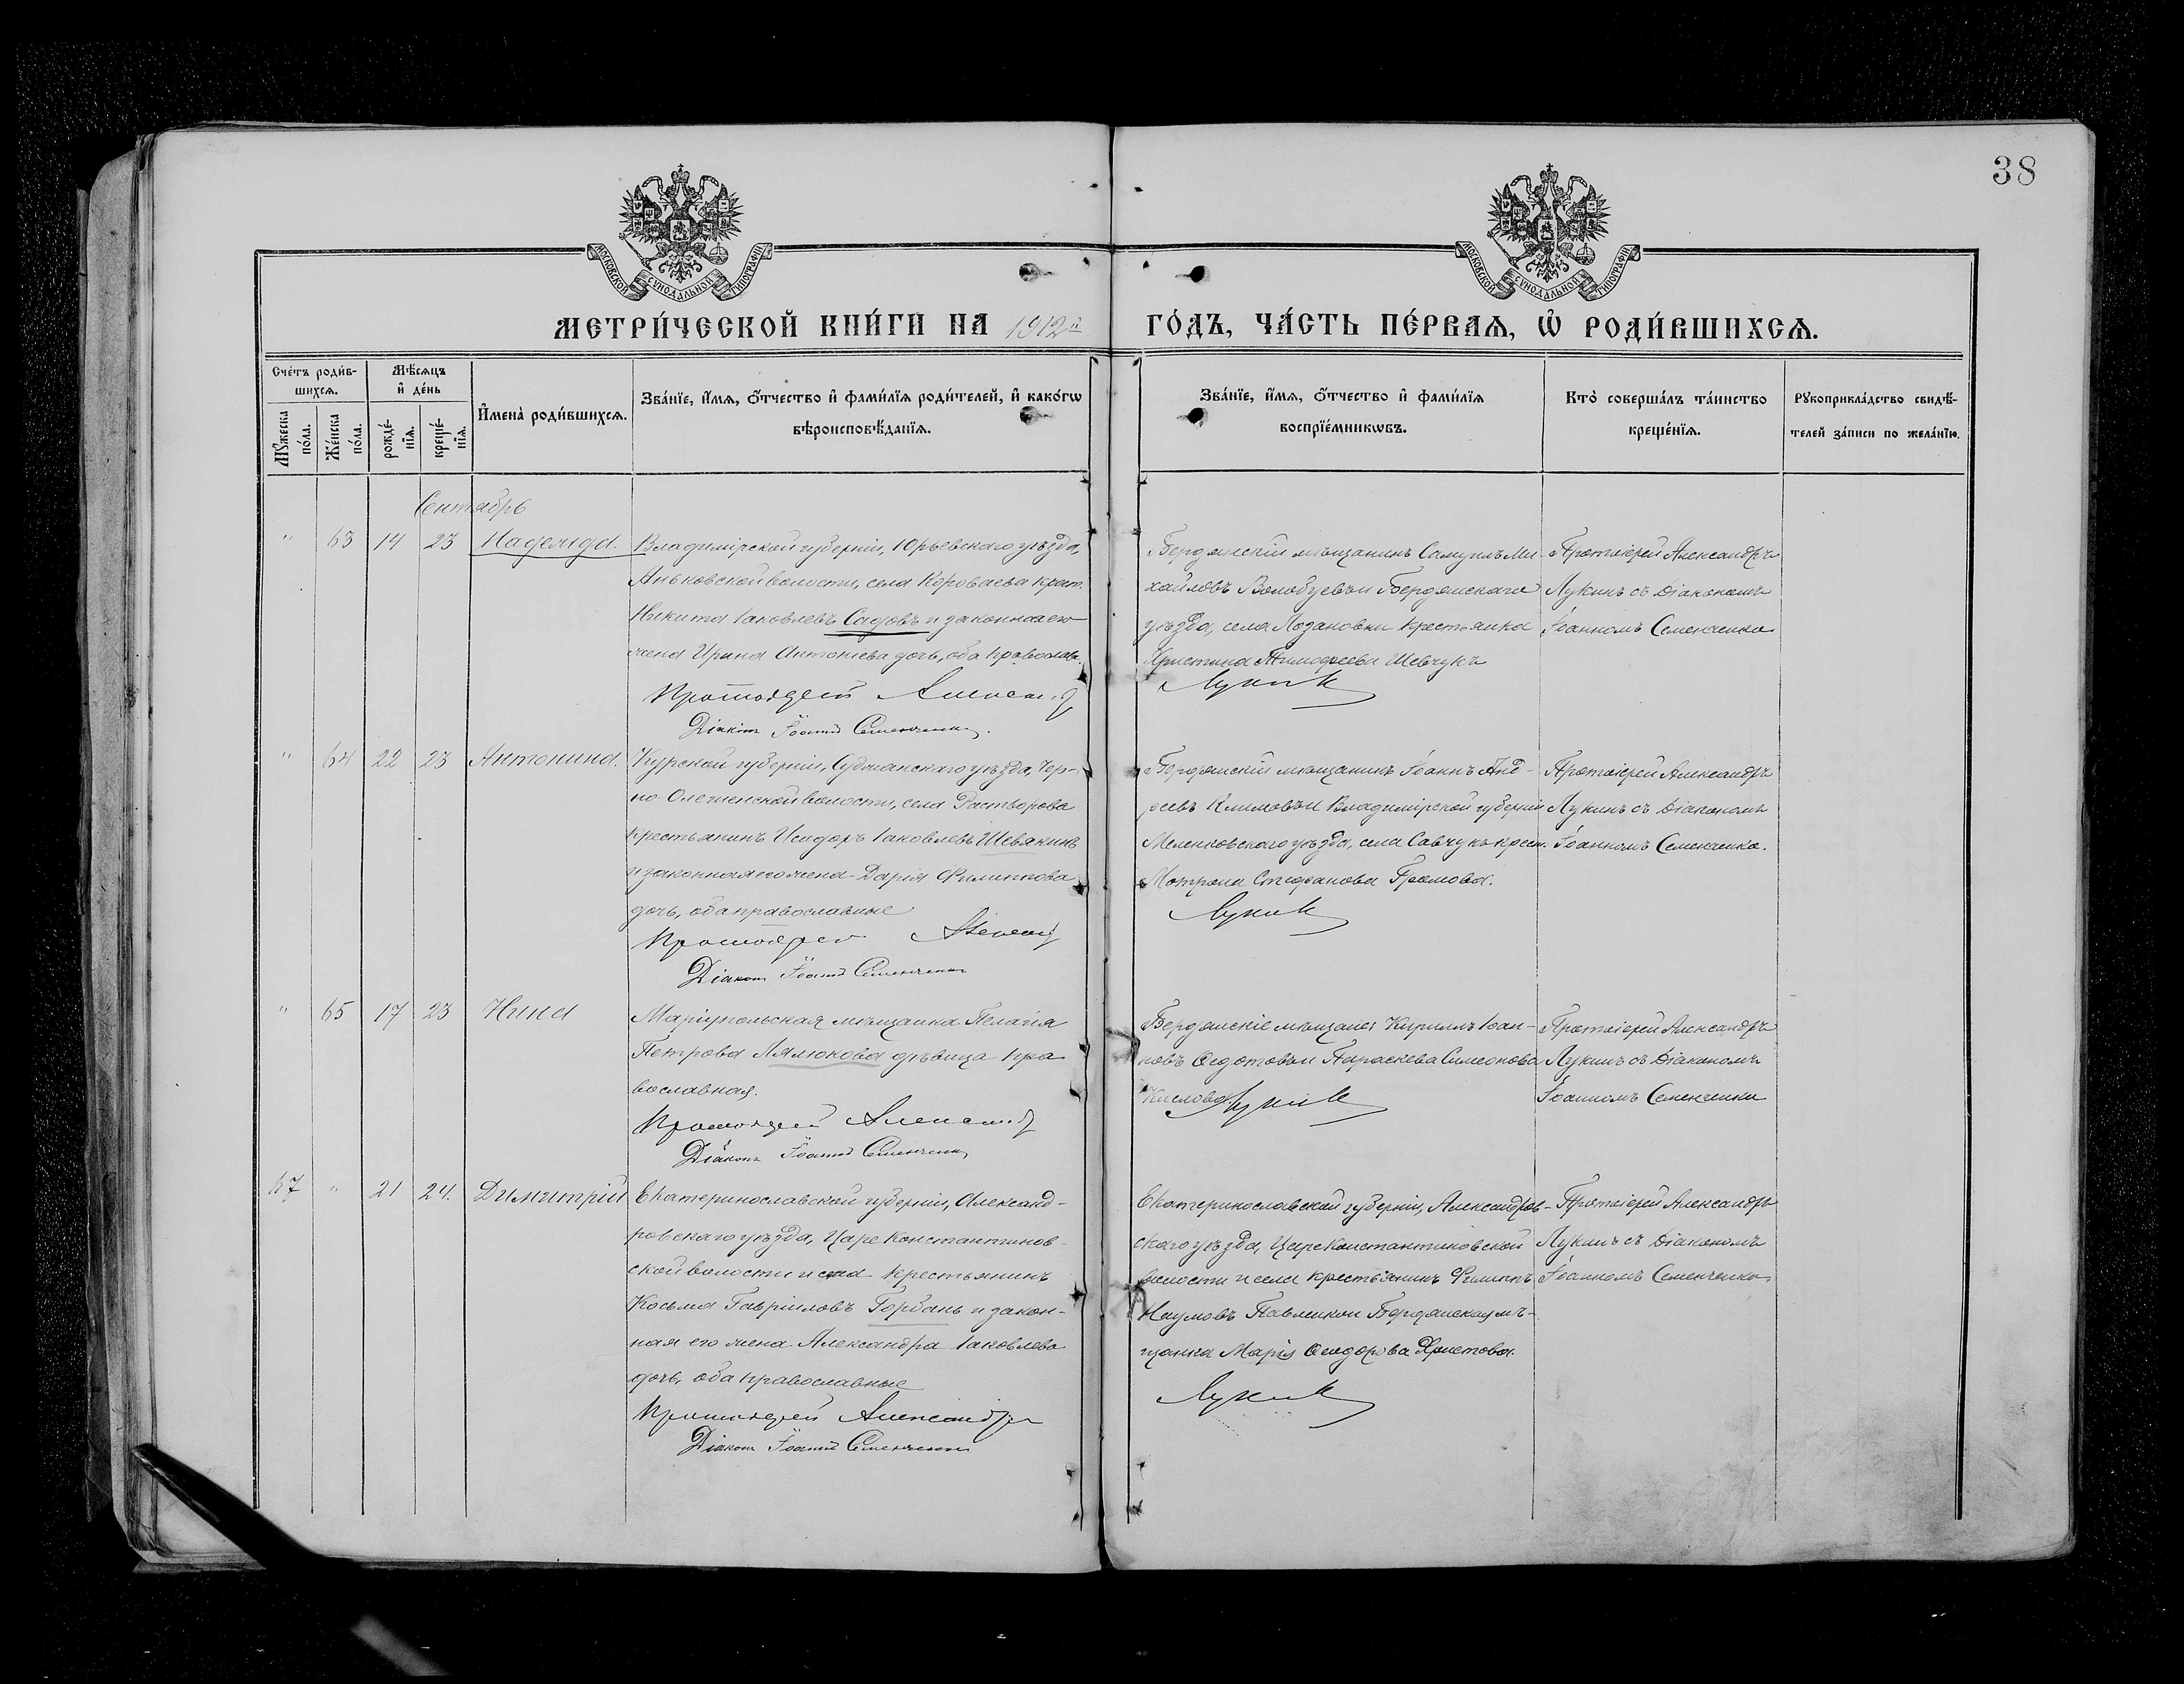 38
МОСКОВСКОЙ СУНОДАЛЬНОЙ ТИПОГРАФІИ
МОСКОВСКОЙ СУНОДАЛЬНОЙ ТИПОГРАФІИ
МЕТРИ́ЧЕСКОЙ КНИ́ГИ НА 1912й ГО́ДЪ, ЧА́СТЬ ПЕ́РВАѦ, Ѡ҆ РОДИ́ВШИХСѦ.
Сче́тъ роди́в-
шихсѧ.
Мѣсѧцъ
и҆ де́нь
Мꙋжеска
по́ла.
Же́нска
по́ла.
рожде́-
нїѧ.
креще́-
нїѧ.
И҆мена̀ роди́вшихсѧ.
Зва́нїе, и҆́мѧ, ѻ҆́тчество и҆ фами́лїѧ роди́телей, и҆ како́гѡ
вѣроисповѣ́данїѧ.
Зва́нїе, и҆́мѧ, ѻ҆́тчество и҆ фами́лїѧ
воспрїе́мникѡвъ.
Кто̀ соверша́лъ та́инство
креще́нїѧ.
Рꙋкоприкла́дство свидѣ́-
телей за́писи по жела́нїю.
Сентябрь
" 63 14 23 Надежда.
Владимірской губерніи, Юрьевскаго уѣзда,
Аньковской волости, села Короваева крест.
Никита Іаковлевъ Садовъ и законная его
жена Ирина Антоніева дочь, оба православ.
Протоіерей Александръ
Діаконъ Іоаннъ Семенченко.
Бердянскій мѣщанинъ Самуилъ Ми
хайловъ Волобуевъ и Бердянскаго
уѣзда, села Лозановки крестьянка
Христина Тимофеева Шевчукъ
Лукинъ
Протоіерей Александръ
Лукинъ съ Діакономъ
Іоанномъ Семенченко
" 64 22 23 Антонина.
Курской губерніи, Суджанскаго уѣзда, Чер-
но-Олешенской волости, села Растворова
крестьянинъ Исидоръ Іаковлевъ Шевякинъ
и законная его жена Дарія Филиппова
дочь, оба православные
Протоіерей Александръ
Діаконъ Іоаннъ Семенченко
Бердянскій мѣщанинъ Іоаннъ Анд-
реевъ Климовъ и Владимірской губерніи
Меленковскаго уѣзда, села Савчукъ крест.
Мотрона Стефанова Громова.
Лукинъ
Протоіерей Александръ
Лукинъ съ Діакономъ
Іоанномъ Семенченко.
" 65 17 23 Нина
Маріупольская мѣщанка Пелагія
Петрова Лялюкова дѣвица пра
вославная.
Протоіерей Александръ
Діаконъ Іоаннъ Семенченко
Бердянскіе мѣщане: Кириллъ Іоан-
новъ Ѳедотовъ и Параскева Симеонова
Кислова. Лукинъ
Протоіерей Александръ
Лукинъ съ Діакономъ
Іоанномъ Семенченко
67 " 21 24. Димитрій
Екатеринославской губерніи, Александ-
ровскаго уѣзда, Царе Константинов-
ской волости и села крестьянинъ
Косьма Гавріиловъ Горбань и закон-
ная его жена Александра Іаковлева
дочь, оба православные
Протоіерей Александръ
Діаконъ Іоаннъ Семенченко
Екатеринославской губерніи, Александров-
скаго уѣзда, Царе Константиновской
волости и села крестьянинъ Филиппъ
Наумовъ Павленко и Бердянская мѣ-
щанка Марія Ѳеодорова Христова.
Лукинъ
Протоіерей Александръ
Лукинъ съ Діакономъ
Іоанномъ Семенченко